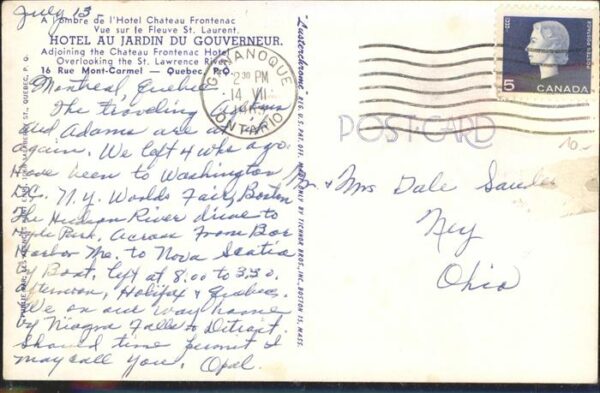 July 13-
A l'ombre de l'Hotel Chateau Frontenac
Vue sur le Fleuve St. Laurent.
HOTEL AU JARDIN DU GOUVERNEUR.
Adjoining the Chateau Frontenac Hotel
Overlooking the St. Lawrence River
16 Rue Mont-Carmel — Quebec, P.Q.
Montreal, Quebec
The traveling
and Adams are at it
again. We left 4 wks ago.
Have been to Washington
D.C. N.Y. Worlds Fair, Boston
The Hudson River drive to
Hyde Park. Across from Bar
Harbor Me. to Nova Scotia
by Boat. left at 8:00 to 3:30
afternoon, Halifax & Quebec.
We on our way home
by Niagra Falls & Detroit.
Should time permit I
may call you. Opal.
"Lusterchrome" REG. U.S. PAT. OFF. MADE ONLY BY TICHNOR BROS., INC. BOSTON 15, MASS.
GANANOQUE
2:30 PM
14 VII
ONTARIO
5
CANADA
POSTES POSTAGE
POST CARD
10-
Mr & Mrs Dale
Ney
Ohio